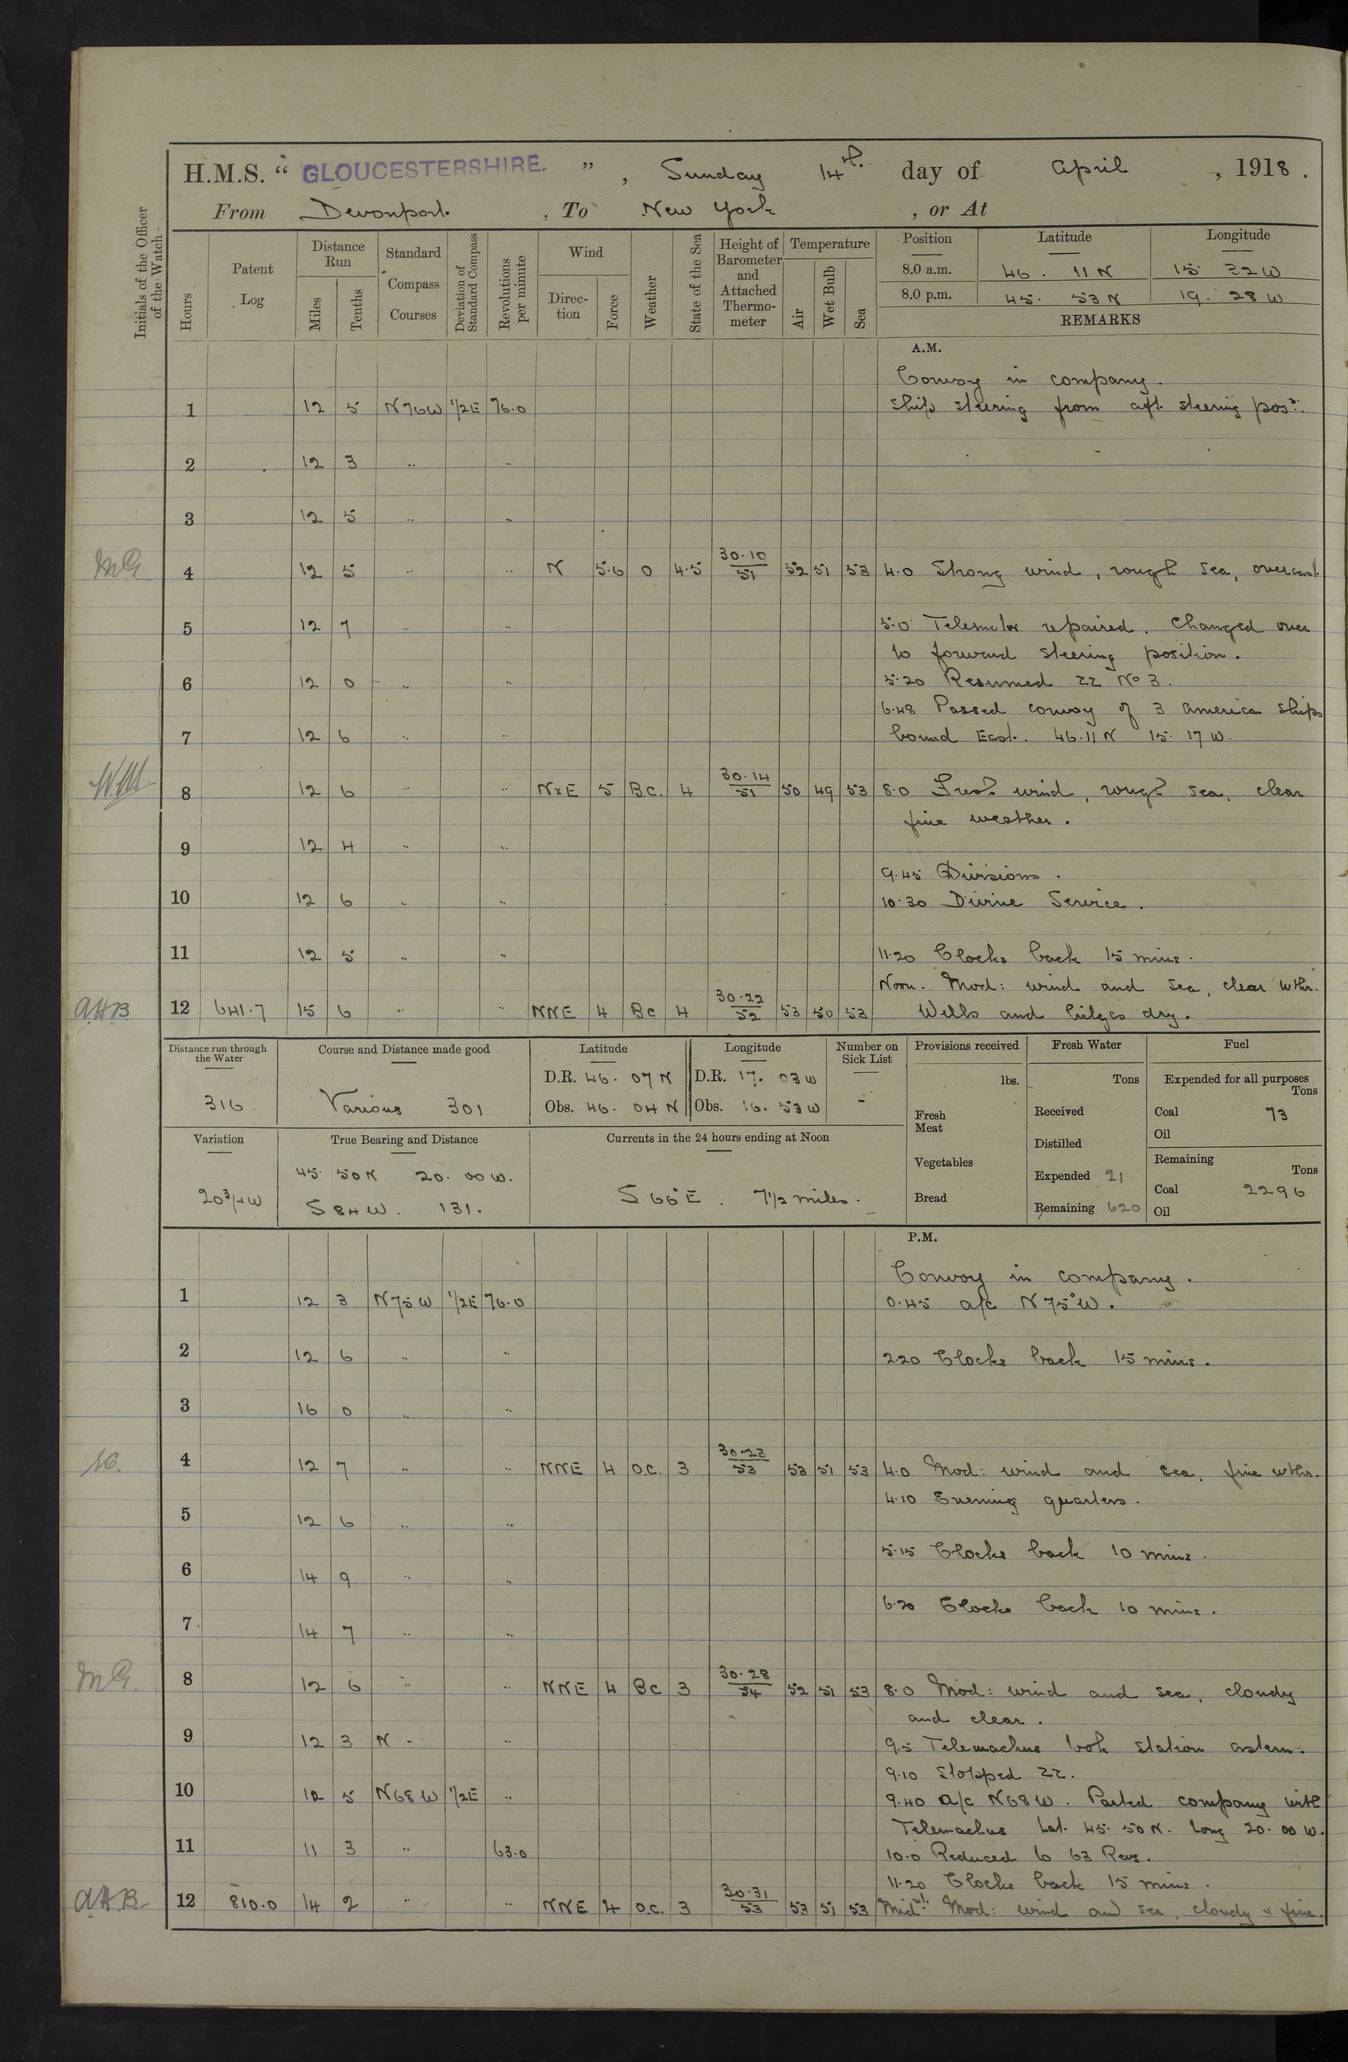 H.M.S. “ GLOUCESTERSHIRE. ” , Sunday 14th. day of April , 1918 .
From Devonport. , To New York , or At
Initials of the Officer of the Watch
Hours
Patent Log
Distance Run
Miles
Tenths
Standard Compass Courses
Deviation of Standard Compass
Revolutions per minute
Wind
Direction
Force
Weather
State of the Sea
Height of Barometer and Attached Thermometer
Temperature
Air
Wet Bulb
Sea
Position Latitude Longitude
8.0 a.m. 46. 11 N 15 22 W
8.0 p.m. 45. 53 N 19. 28 W
REMARKS
A.M.
Convoy in company.
1 12 5 N76W 1/2E 76.0 Ship steering from aft steering posn.
2 12 3 " "
3 12 5 " "
MG 4 12 5 " " N 5.6 O 4.5 30.10/51 52 51 53 4.0 Strong wind, rough sea, overcast.
5 12 7 " " 5.0 Telemotor repaired. Changed over
to forward steering position.
6 12 0 " " 5.20 Resumed ZZ No 3.
6.48 Passed convoy of 3 america ships
7 12 6 " " bound East. 46.11 N 15. 17 W.
8 12 6 " " NxE 5 B.C. 4 30.14/51 50 49 53 8.0 Fresh wind, rough sea, clear
fine weather.
9 12 4 " "
9.45 Divisions.
10 12 6 " " 10.30 Divine Service.
11 12 5 " " 11.20 Clocks back 15 mins.
Noon. Mod: wind and sea, clear wthr.
AHB 12 641.7 15 6 " " NNE 4 Bc 4 30.22/52 53 50 53 Wells and bilges dry.
Distance run through the Water
316
Course and Distance made good
Various 301
Latitude
D.R. 46. 07 N
Obs. 46. 04 N
Longitude
D.R. 17. 03 W
Obs. 16. 53 W
Number on Sick List
-
Provisions received
lbs.
Fresh Meat
Vegetables
Bread
Fresh Water
Tons
Received
Distilled
Expended 21
Remaining 620
Fuel
Expended for all purposes
Tons
Coal 73
Oil
Remaining
Tons
Coal 2296
Oil
Variation
20 3/4 W
True Bearing and Distance
45 50 N 20. 00 W.
S 84 W. 131.
Currents in the 24 hours ending at Noon
S 66° E. 7 1/2 miles.
P.M.
Convoy in company.
1 12 3 N75W 1/2E 76.0 0.45 a/c N 75° W.
2 12 6 " " 2.20 Clocks back 15 mins.
3 16 0 " "
4 12 7 " " NNE 4 O.C. 3 30.22/53 53 51 53 4.0 Mod: wind and sea, fine wthr.
4.10 Evening quarters.
5 12 6 " "
5.15 Clocks back 10 mins.
6 14 9 " "
6.20 Clocks back 10 mins.
7 14 7 " "
MG. 8 12 6 " " NNE 4 Bc 3 30.28/54 52 51 53 8.0 Mod: wind and sea, cloudy
and clear.
9 12 3 N - " 9.5 Telemachus took station astern.
9.10 Stopped ZZ.
10 12 5 N68W 1/2E " 9.40 a/c N68W. Parted company with
Telemachus Lat. 45. 50 N. Long 20. 00 W.
11 11 3 " 63.0 10.0 Reduced to 63 Revs.
11.20 Clocks back 15 mins.
AHB. 12 810.0 14 2 " " NNE 4 O.C. 3 30.31/53 53 51 53 Midnt. Mod: wind and sea, cloudy & fine.